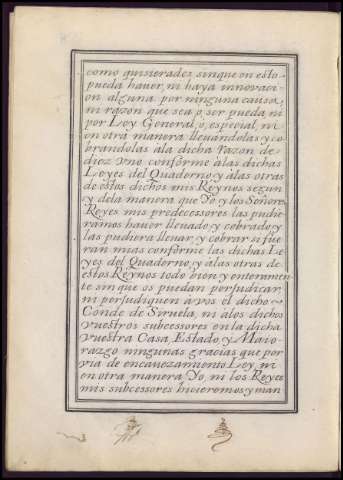 como quisierades, sinque en esto
pueda hauer, ni haya innovaci-
on alguna por ninguna causa,
ni razon que sea o ser pueda ni
por Ley General, ó especial, ni
en otrá manera lleuándolas y co
brandolas ala dicha razon de
diez vno confórme álas dichas
Leyes del Quaderno y álas otras
de estos dichos mis Reynos segun
y dela manera que Yo y los Señores
Reyes mis predecessores las pudie
ramos hauer lleuado y cobrado y
las pudiera lleuar y cobrar si fue
ran mias confórme las dichas Le
yes del Quaderno y álas otras de
estos Reynos todo bien y enteramen-
te sin que os puedan perjudicar,
ni perjudiquen á vos el dicho
Conde de Siruela, ni álos dichos
vuestros subcessores en la dicha
vuestra Casa, Estado, y Maio-
razgo ningunas gracias que por
via de encauezamiento Ley, ni
en otra manera Yo, ni los Reyes
mis subcessores hicieremos y man